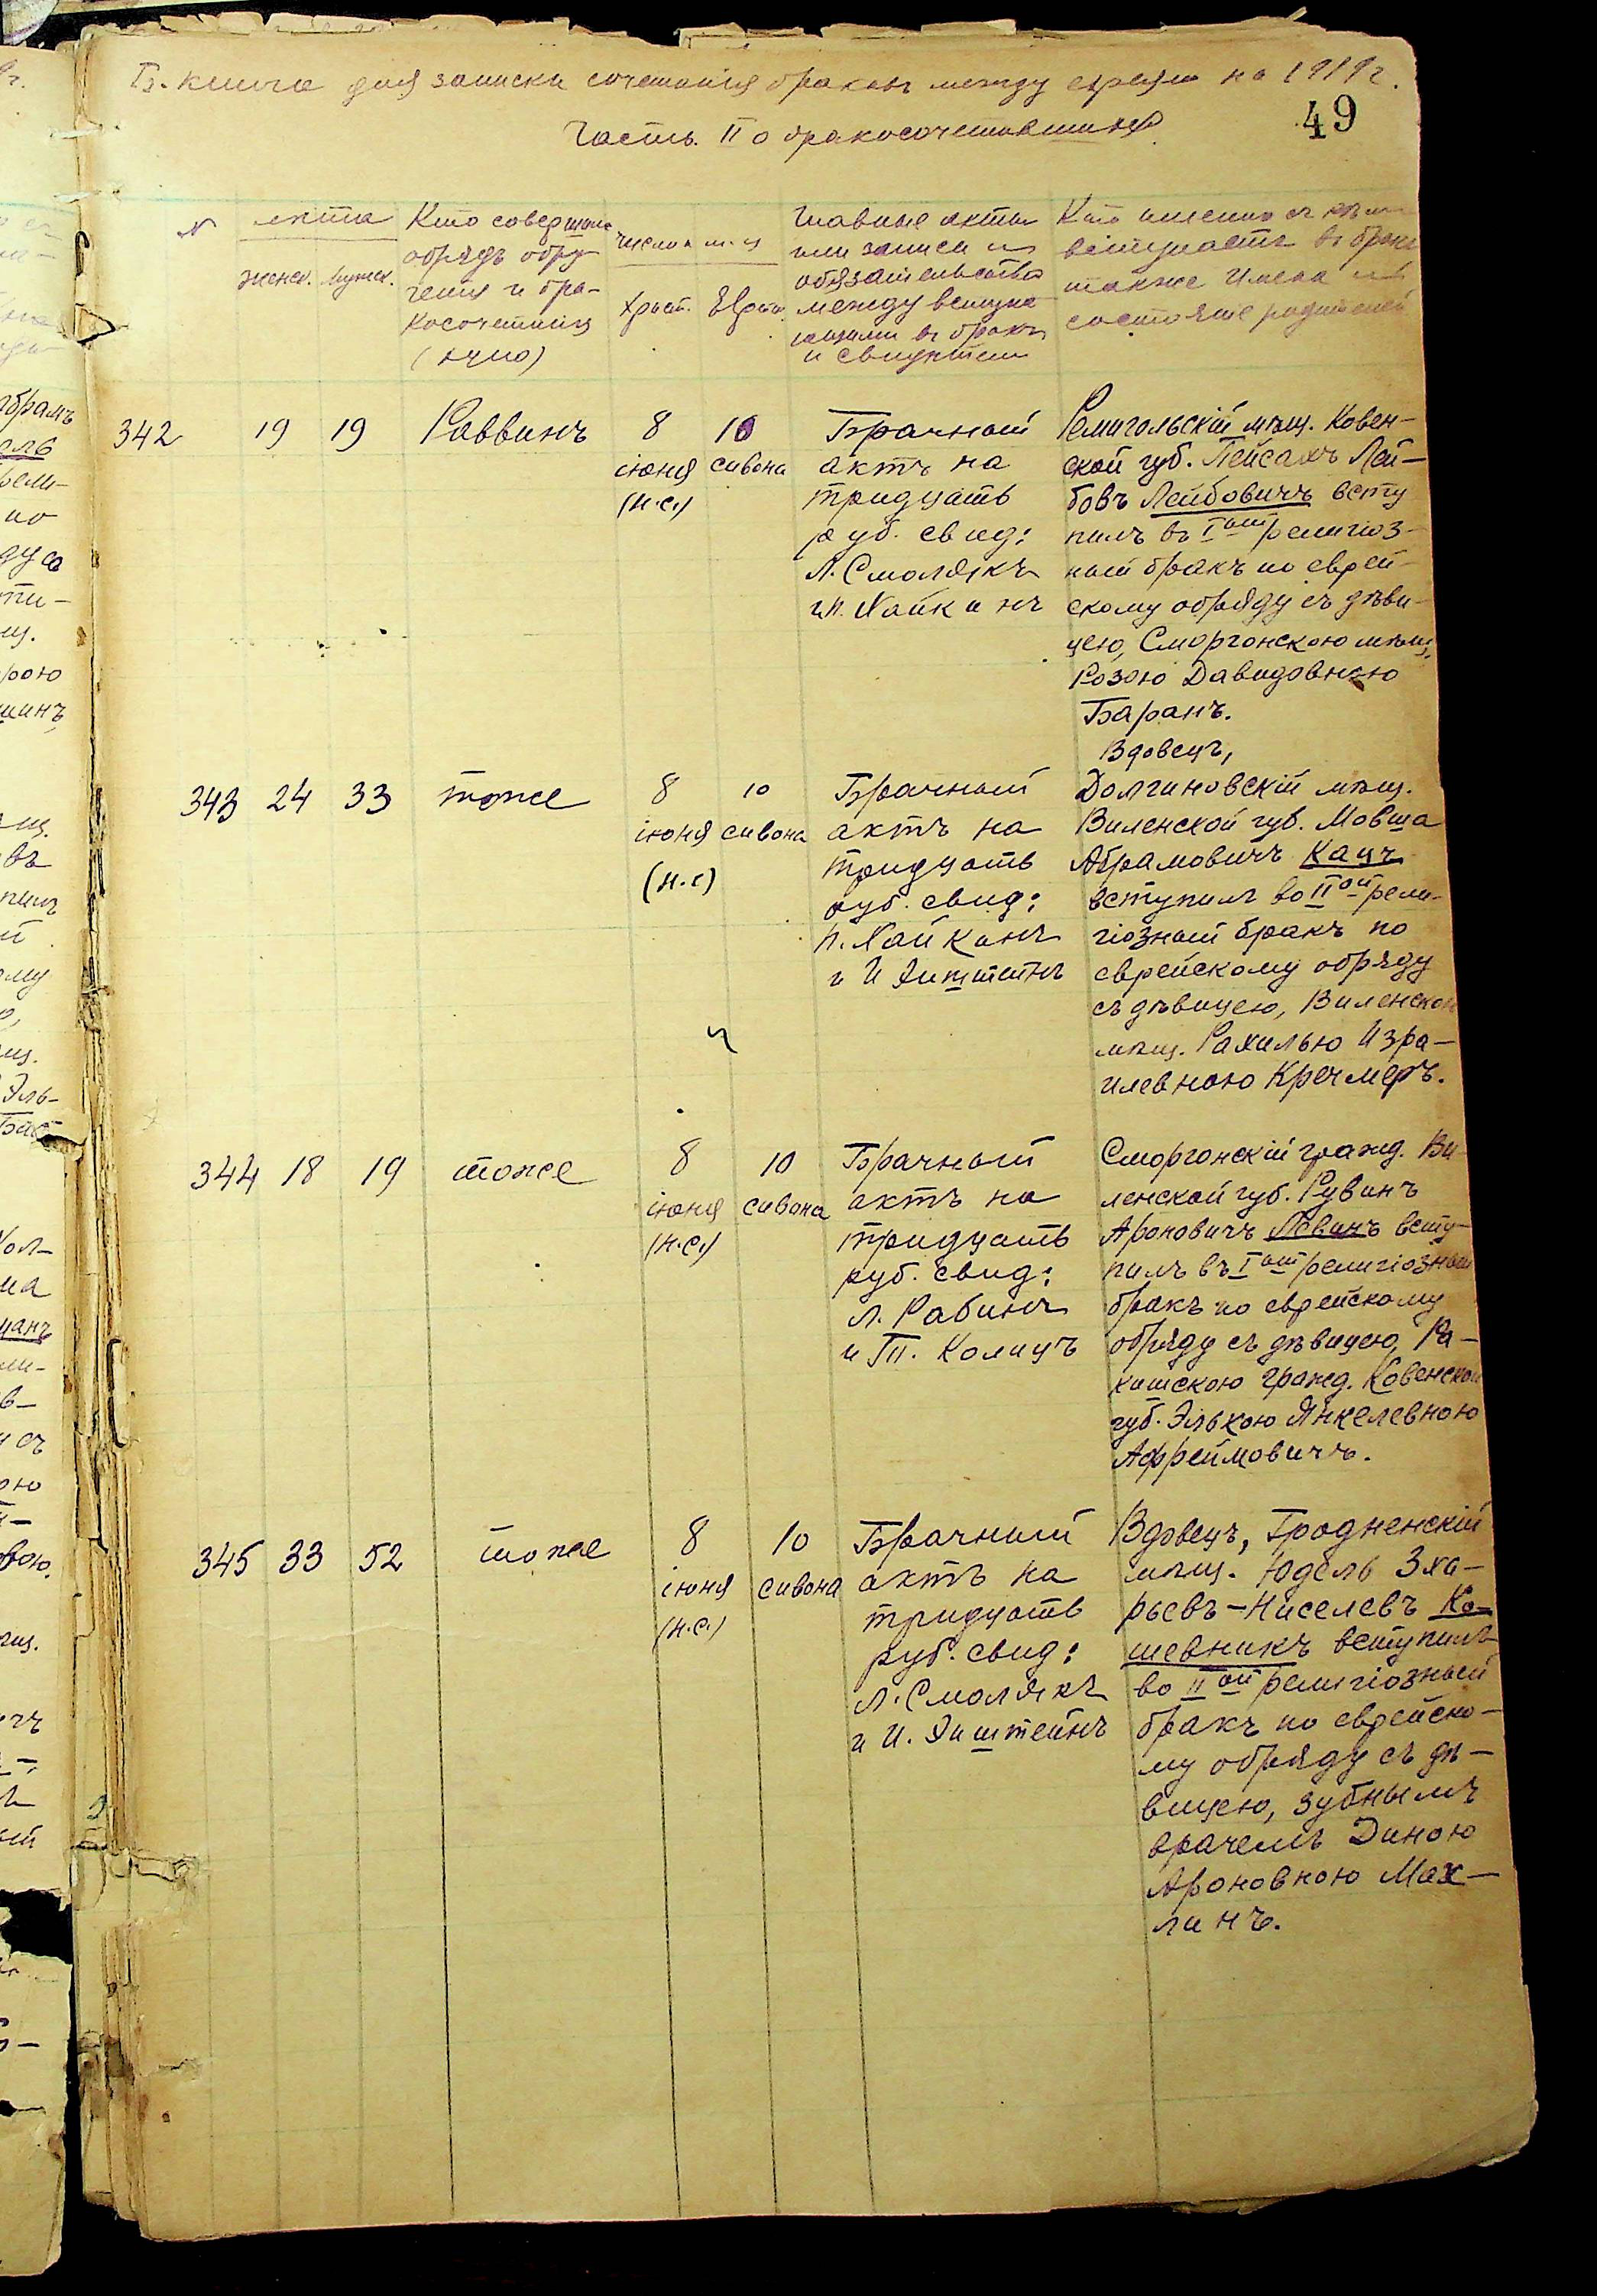 Б. книга для записки сочетанія браковъ между евреями на 1919 г.
49
Часть II о бракосочетавшихся
№
лѣта
женск. мужск.
Кто совершалъ
обрядъ обру-
ченія и бра-
косочетанія
(лично)
число и м-цъ
Христ. Еврейск.
Главные акты
или записи и
обязательства
между вступа-
ющими въ бракъ
и свидѣтели
Кто именно съ кѣмъ
вступаетъ въ бракъ
также имена и
состояніе родителей
342 19 19 Раввинъ
8
іюня
(н.с.)
10
сивона
Брачный
актъ на
тридцать
руб. свид:
Л. Смолякъ
и П. Хайкинъ
Ремигольскій мѣщ. Ковен-
ской губ. Пейсахъ Лей-
бовъ Лейбовичъ всту
пилъ въ Iый религіоз-
ный бракъ по еврей-
скому обряду съ дѣви-
цею, Сморгонскою мѣщ.
Розою Давидовною
Баранъ.
343 24 33 тоже
8
іюня
(н.с)
10
сивона
Брачный
актъ на
тридцать
руб. свид:
П. Хайкинъ
и И Эпштейнъ
Вдовецъ,
Долгиновскій мѣщ.
Виленской губ. Мовша
Абрамовичъ Кацъ
вступилъ во IIой рели-
гіозный бракъ по
еврейскому обряду
съ дѣвицею, Виленскою
мѣщ. Рахилью Изра-
илевною Кречмеръ.
344 18 19 тоже
8
іюня
(н.с.)
10
сивона
Брачный
актъ на
тридцать
руб. свид:
Л. Рабинъ
и П. Колицъ
Сморгонскій гражд. Ви-
ленской губ. Рувинъ
Ароновичъ Левинъ всту-
пилъ въ Iый религіозный
бракъ по еврейскому
обряду съ дѣвицею, Ра-
кишскою гражд. Ковенской
губ. Элькою Янкелевною
Афреймовичъ.
345 33 52 тоже
8
іюня
(н.с.)
10
сивона
Брачный
актъ на
тридцать
руб. свид:
Л. Смолякъ
и И. Эпштейнъ
Вдовецъ, Гродненскій
мѣщ. Юдель Зха-
рьевъ-Ниселевъ Ко-
шевникъ вступилъ
во IIой религіозный
бракъ по еврейско-
му обряду съ дѣ-
вицею, зубнымъ
врачемъ Диною
Ароновною Мах-
линъ.